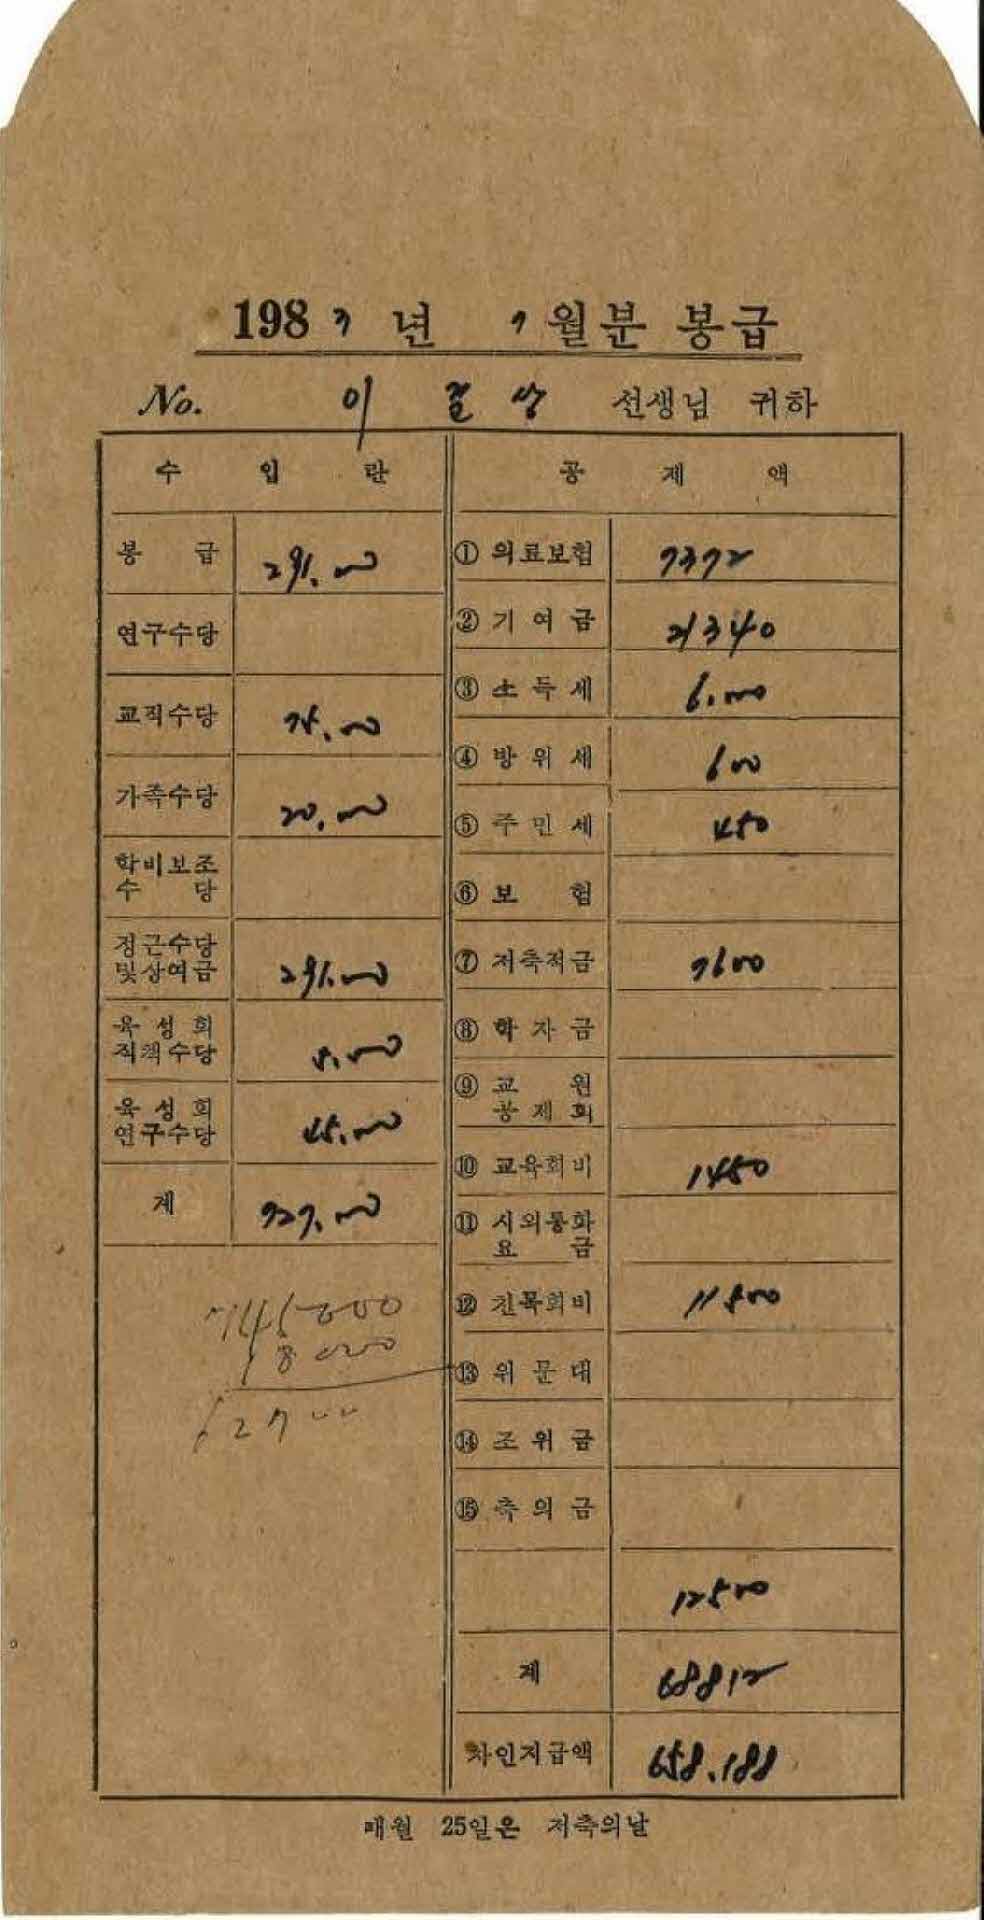 1987년 7월분 봉급
No. 이 상 선생님 귀하
수 입 란
봉 급 291.000
연구수당
교직수당 75.000
가족수당 20.000
학비보조
수 당
정근수당
및상여금 291.000
육 성 회
직책수당 5.000
육 성 회
연구수당 45.000
계 727.000
745000
공 제 액
① 의료보험 7372
② 기 여 금 21340
③ 소 득 세 6.000
④ 방 위 세 600
⑤ 주 민 세 450
⑥ 보 험
⑦ 저축적금 7600
⑧ 학 자 금
⑨ 교 원
공 제 회
⑩ 교육회비 1450
⑪ 시외통화
요 금
⑫ 친목회비 11500
⑬ 위 문 대
⑭ 조 위 금
⑮ 축 의 금
12500
계 68812
차인지급액 658.188
매월 25일은 저축의날